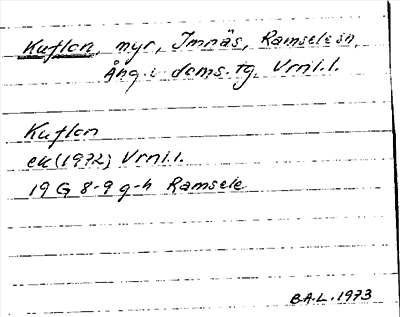 Kuflon, myr, Imnäs, Ramsele sn,
Ång. o doms. tg, Vrnl.l.
Kuflon
ek (1972) Vrnl.l.
19 G 8-9 g-h Ramsele
B.A.L. 1973